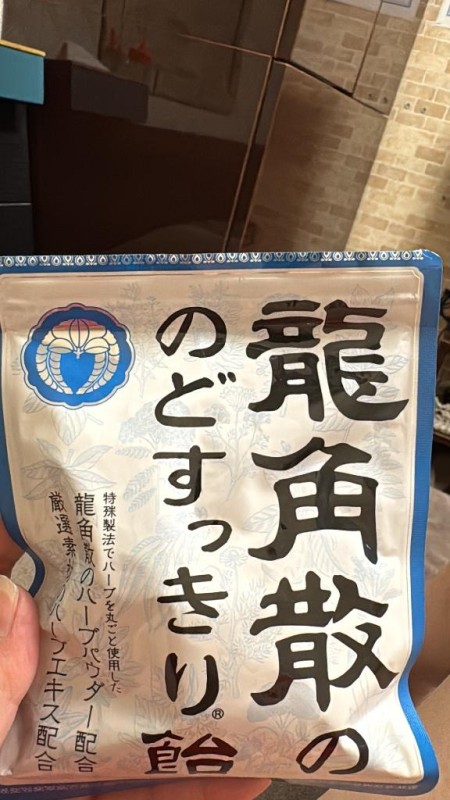 龍角散の
のどすっきり®飴
特殊製法でハーブを丸ごと使用した
龍角散のハーブパウダー配合
厳選素材のハーブエキス配合